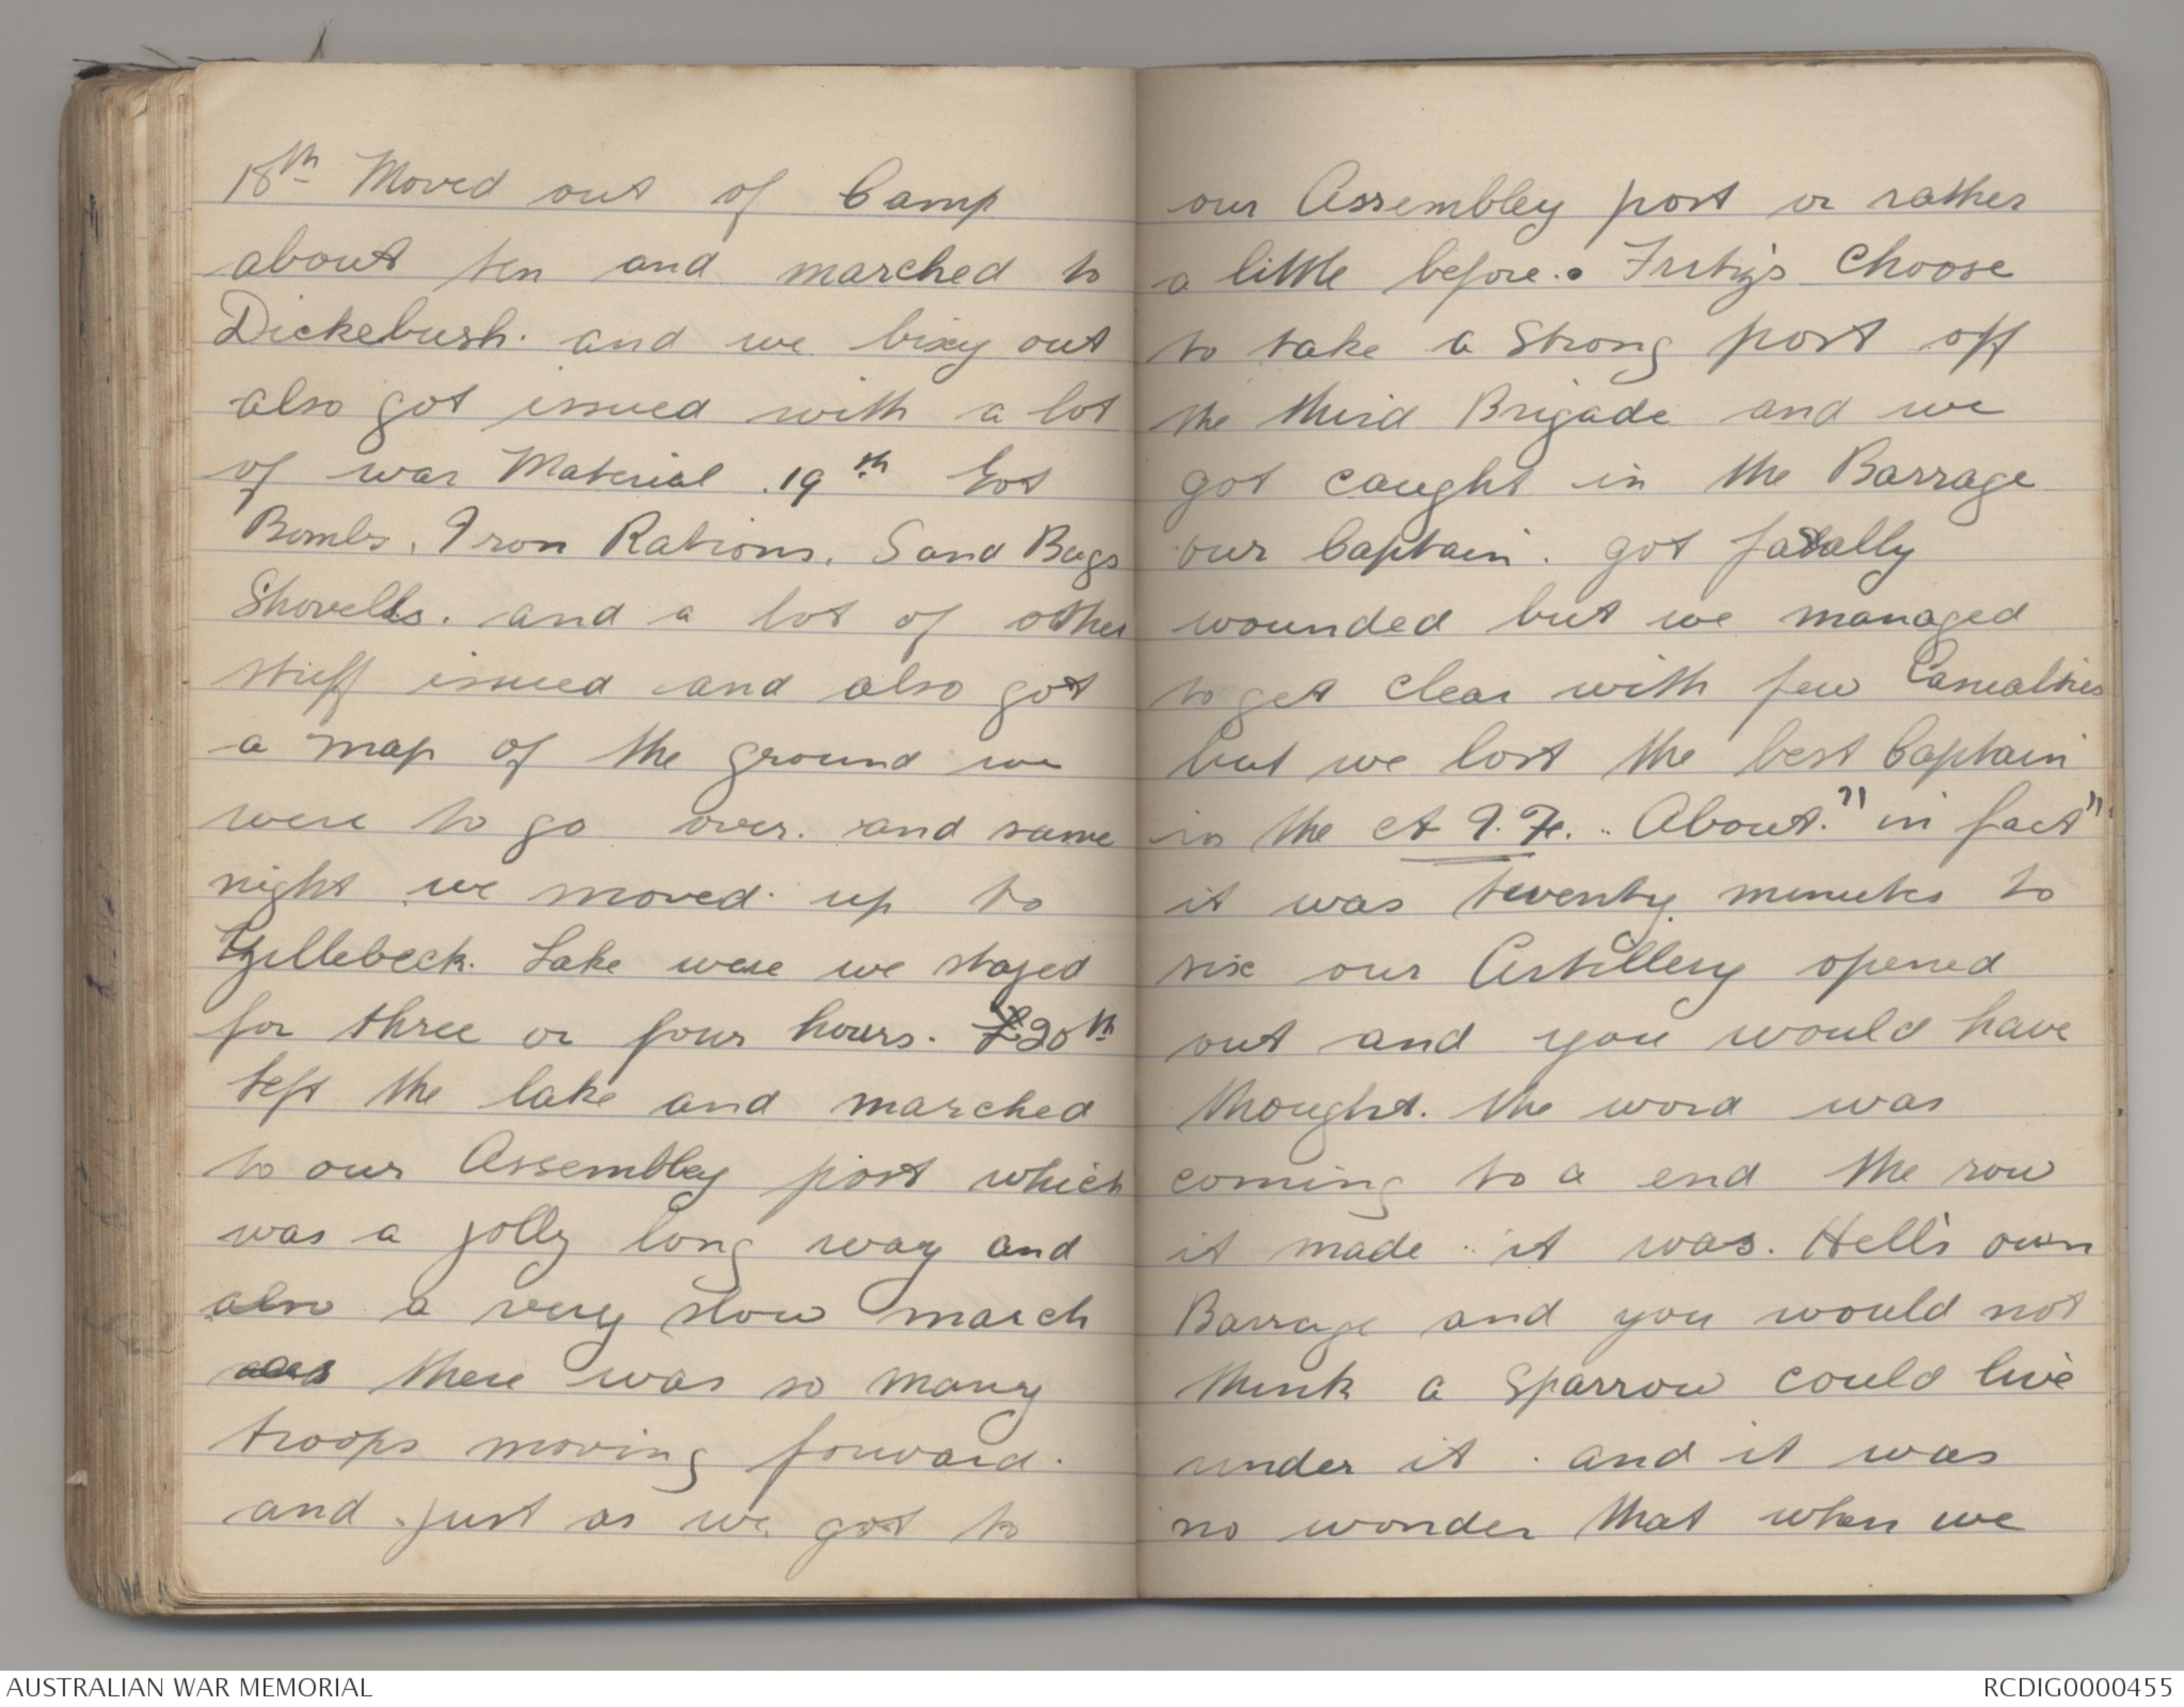 18th Moved out of Camp
about ten and marched to
Dickebush. and we bixy out
also got issued with a lot
of war Material. 19th Got
Bombs, Iron Rations, Sand Bags
Shovells. and a lot of other
stuff issued and also got
a map of the ground we
were to go over. and same
night we moved up to
Zyllebeck. Lake were we stayed
for three or four hours. 20th
left the lake and marched
to our Assembley post which
was a jolly long way and
also a very slow march
as there was so many
troops moving forward.
and just as we got to
our Assembley post or rather
a little before. Fritzys Choose
to take a Strong post off
the third Brigade and we
got caught in the Barrage
our Captain. got fatally
wounded but we managed
to get clear with few Casualties
but we lost the best Captain
in the A.I.F. .. About. "in fact"
it was twenty minutes to
six our Artillery opened
out and you would have
thought. the word was
coming to a end the row
it made .. it was. Hell's own
Barrage and you would not
think a Sparrow could live
under it . and it was
no wonder that when we
AUSTRALIAN WAR MEMORIAL
RCDIG0000455